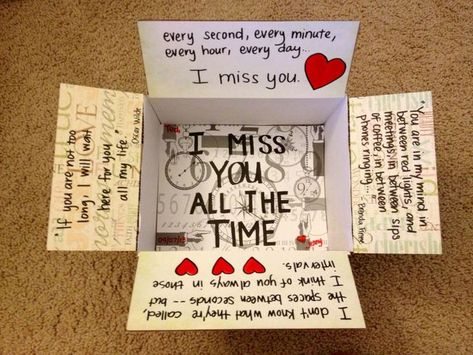 every second, every minute,
every hour, every day...
I miss you.
"If you are not too
long, I will wait
here for you
all my life."
Oscar Wilde
Ted,
I MISS
YOU
ALL THE
TIME
"You are in my mind in
between red lights, and
meetings; in between sips
of coffee; in between
phones ringing..."
- Brenda
I don't know what they're called,
the spaces between seconds -- but
I think of you always in those
intervals.